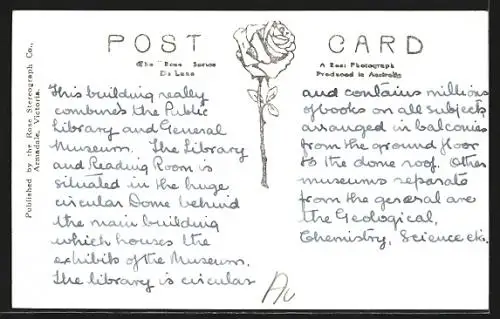 POST CARD
The "Rose" Series
De Luxe
A Real Photograph
Produced in Australia
Published by the Rose Stereograph Co.,
Armadale, Victoria.
This building really
combines the Public
Library and General
Museum. The Library
and Reading Room is
situated in the huge
circular Dome behind
the main building
which houses the
exhibits of the Museum.
The library is circular
and contains millions
of books on all subjects
arranged in balconies
from the ground floor
to the dome roof. Other
museums separate
from the general are
the Geological,
Chemistry, Science etc.
Au